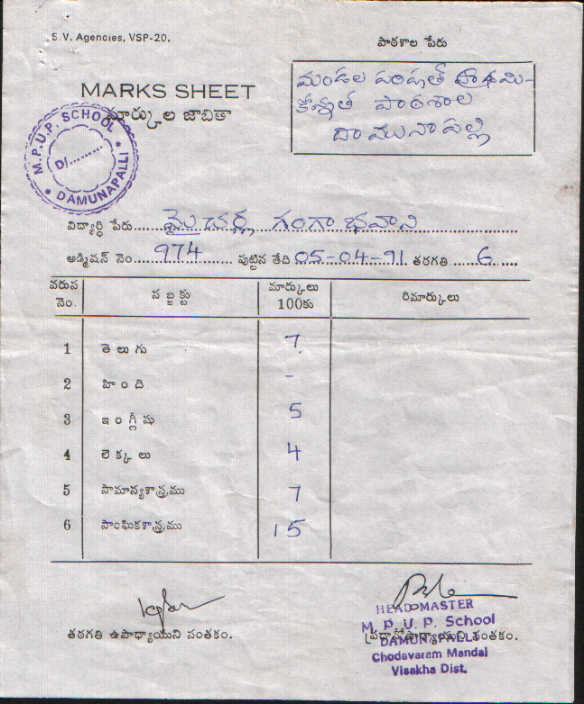 S.V. Agencies, VSP-20.
పాఠశాల పేరు
MARKS SHEET
మార్కుల జాబితా
మండల పరిషత్ ప్రాథమి-
కోన్నత పాఠశాల
దామునాపల్లి
M.P.U.P. SCHOOL
D/............
DAMUNAPALLI
విద్యార్ధి పేరు.... గంగా భవాని
అడ్మిషన్ నెం......974...... పుట్టిన తేది 05-04-91 తరగతి ......6......
వరుస నెం. సబ్జక్టు మార్కులు 100కు రిమార్కులు
1 తెలుగు 7
2 హింది -
3 ఇంగ్లీషు 5
4 లెక్కలు 4
5 సామాన్యశాస్త్రము 7
6 సాంఘికశాస్త్రము 15
తరగతి ఉపాధ్యాయుని సంతకం.
ప్రధానోపాధ్యాయుని సంతకం.
HEADMASTER
M. P. U. P. School
DAMUNAPALLI
Chodavaram Mandal
Visakha Dist.